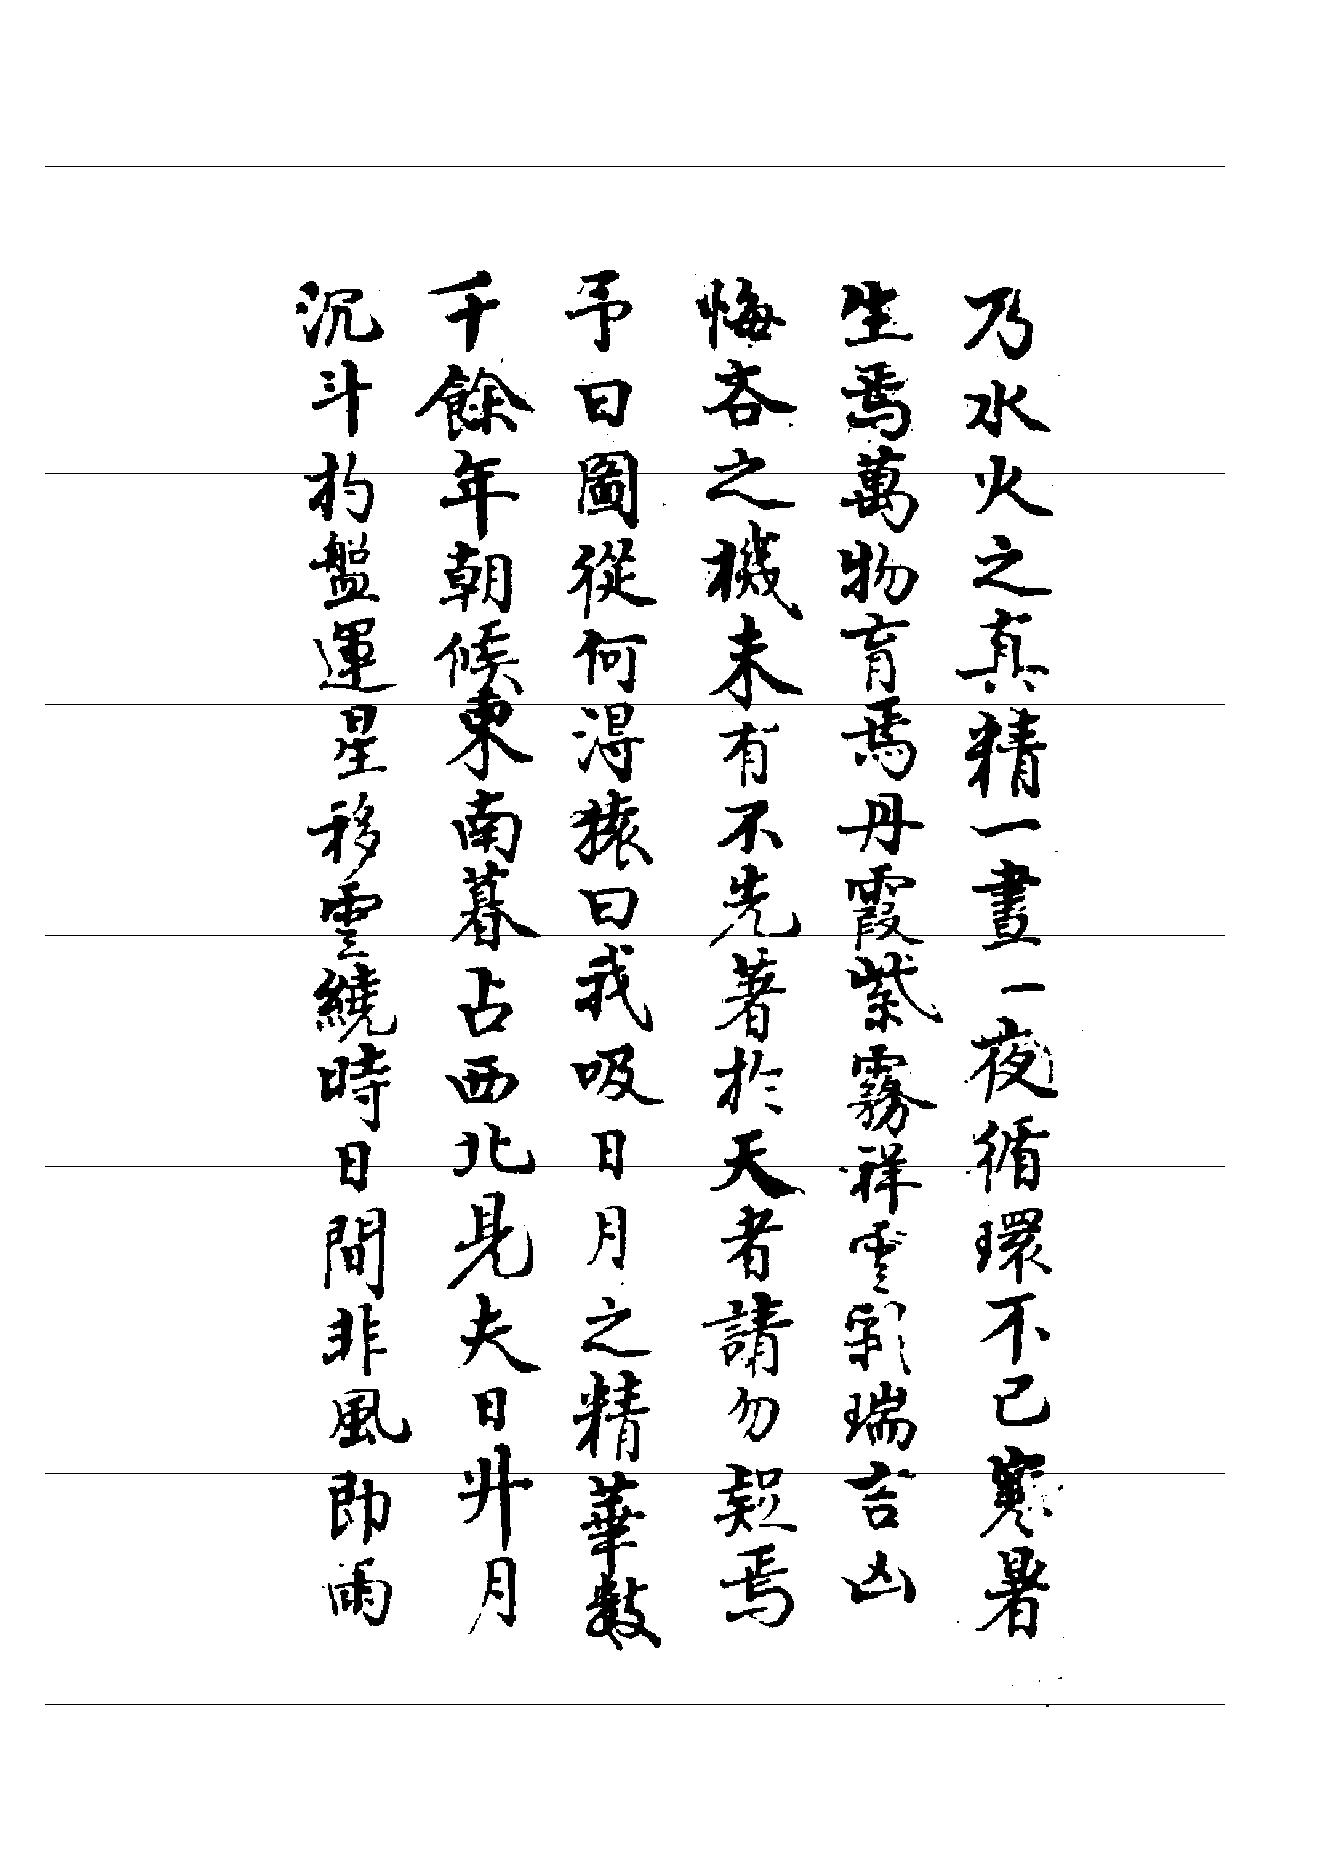 乃水火之真精一晝一夜循環不已寒暑
生焉萬物育焉丹霞紫霧祥雲彩瑞吉凶
悔吝之機未有不先著於天者請勿疑焉
予曰圖從何得猿曰我吸日月之精華數
千餘年朝候東南暮占西北見夫日升月
沉斗杓盤運星移雲繞時日間非風即雨